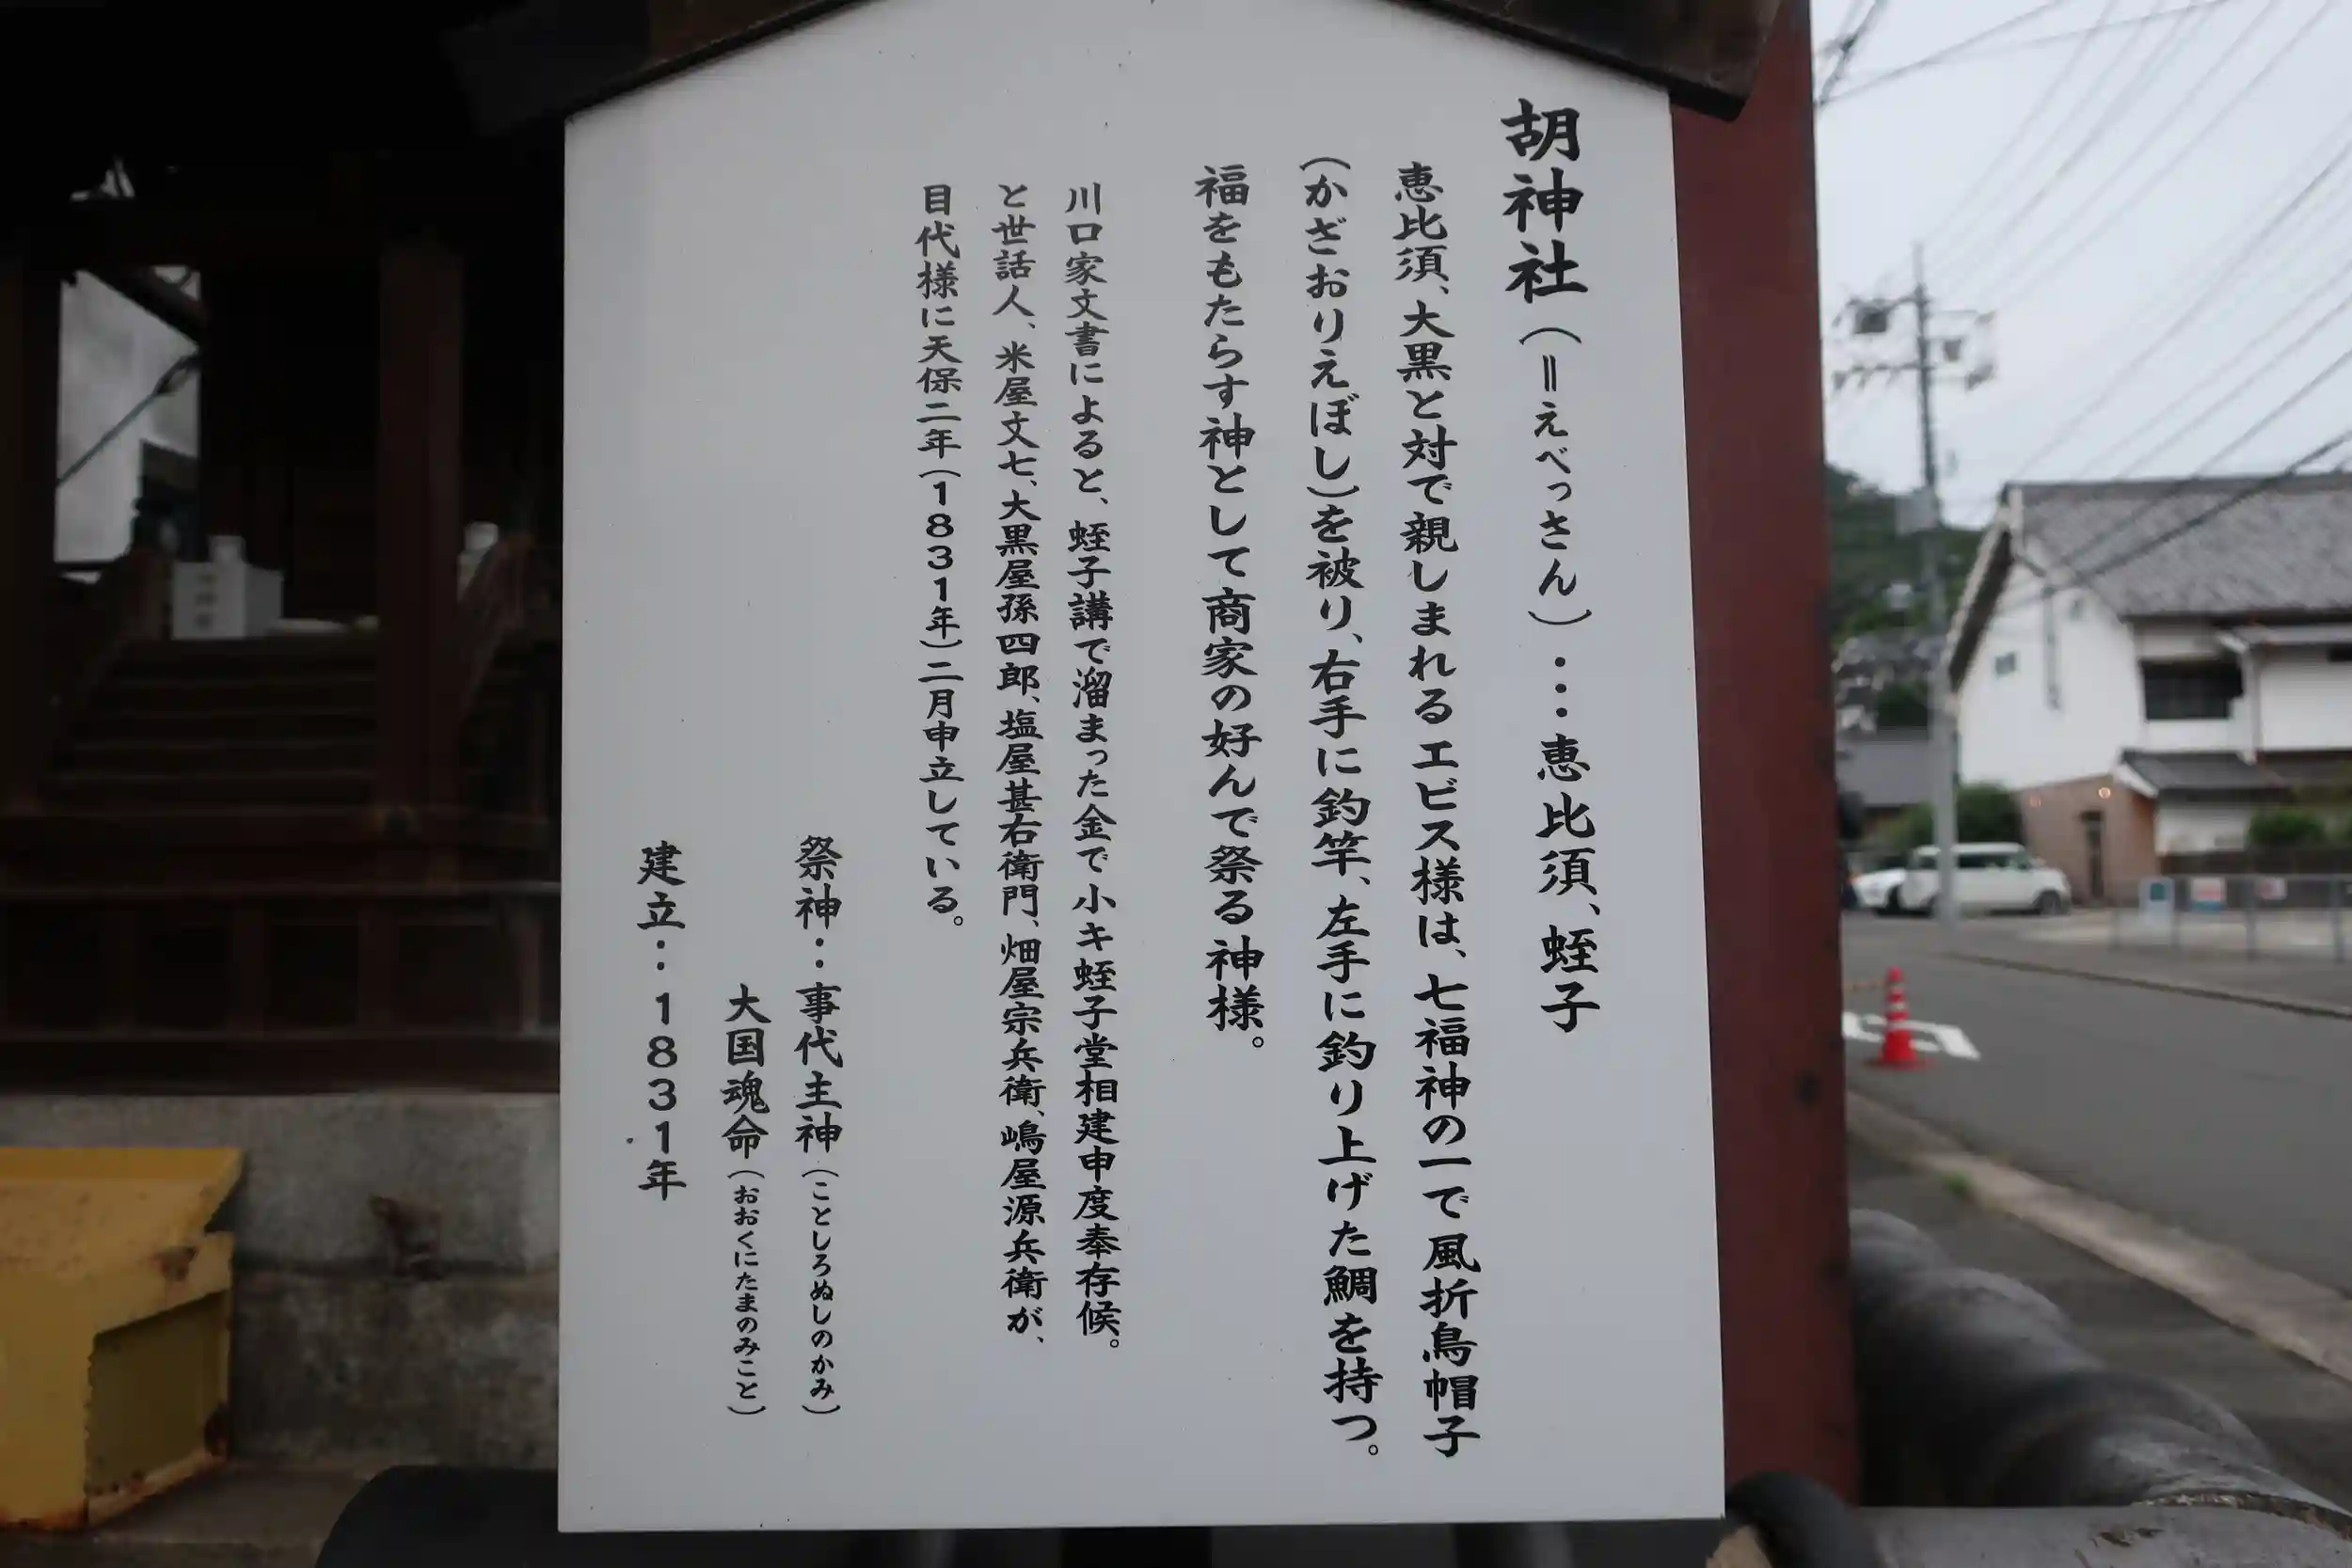 胡神社(=えべっさん)･･･恵比須、蛭子
恵比須、大黒と対で親しまれるエビス様は、七福神の一で風折烏帽子
(かざおりえぼし)を被り、右手に釣竿、左手に釣り上げた鯛を持つ。
福をもたらす神として商家の好んで祭る神様。
川口家文書によると、蛭子講で溜まった金で小キ蛭子堂相建申度奉存候。
と世話人、米屋文七、大黒屋孫四郎、塩屋甚右衛門、畑屋宗兵衛、嶋屋源兵衛が、
目代様に天保二年(1831年)二月申立している。
祭神･･事代主神(ことしろぬしのかみ)
大国魂命(おおくにたまのみこと)
建立･･1831年